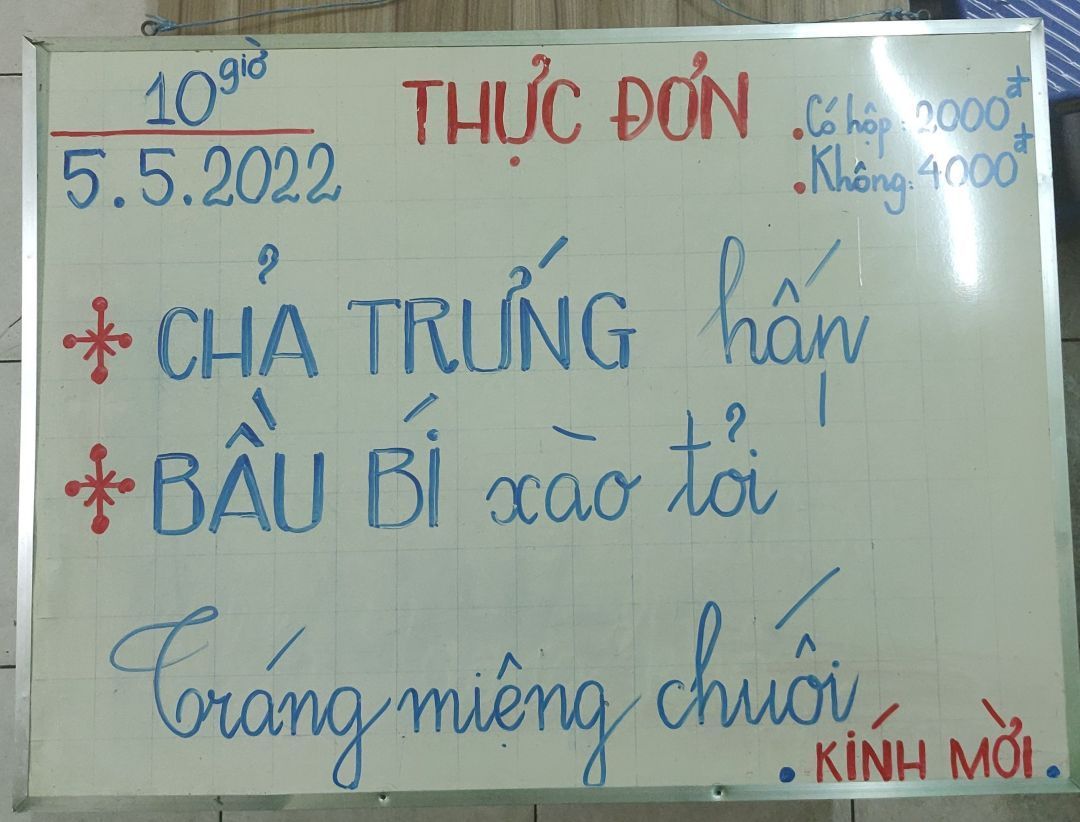 10 giờ
5.5.2022
THỰC ĐƠN
. Có hộp: 2000đ
. Không: 4000đ
CHẢ TRỨNG hấp
BẦU BÍ xào tỏi
Tráng miệng chuối
. KÍNH MỜI.